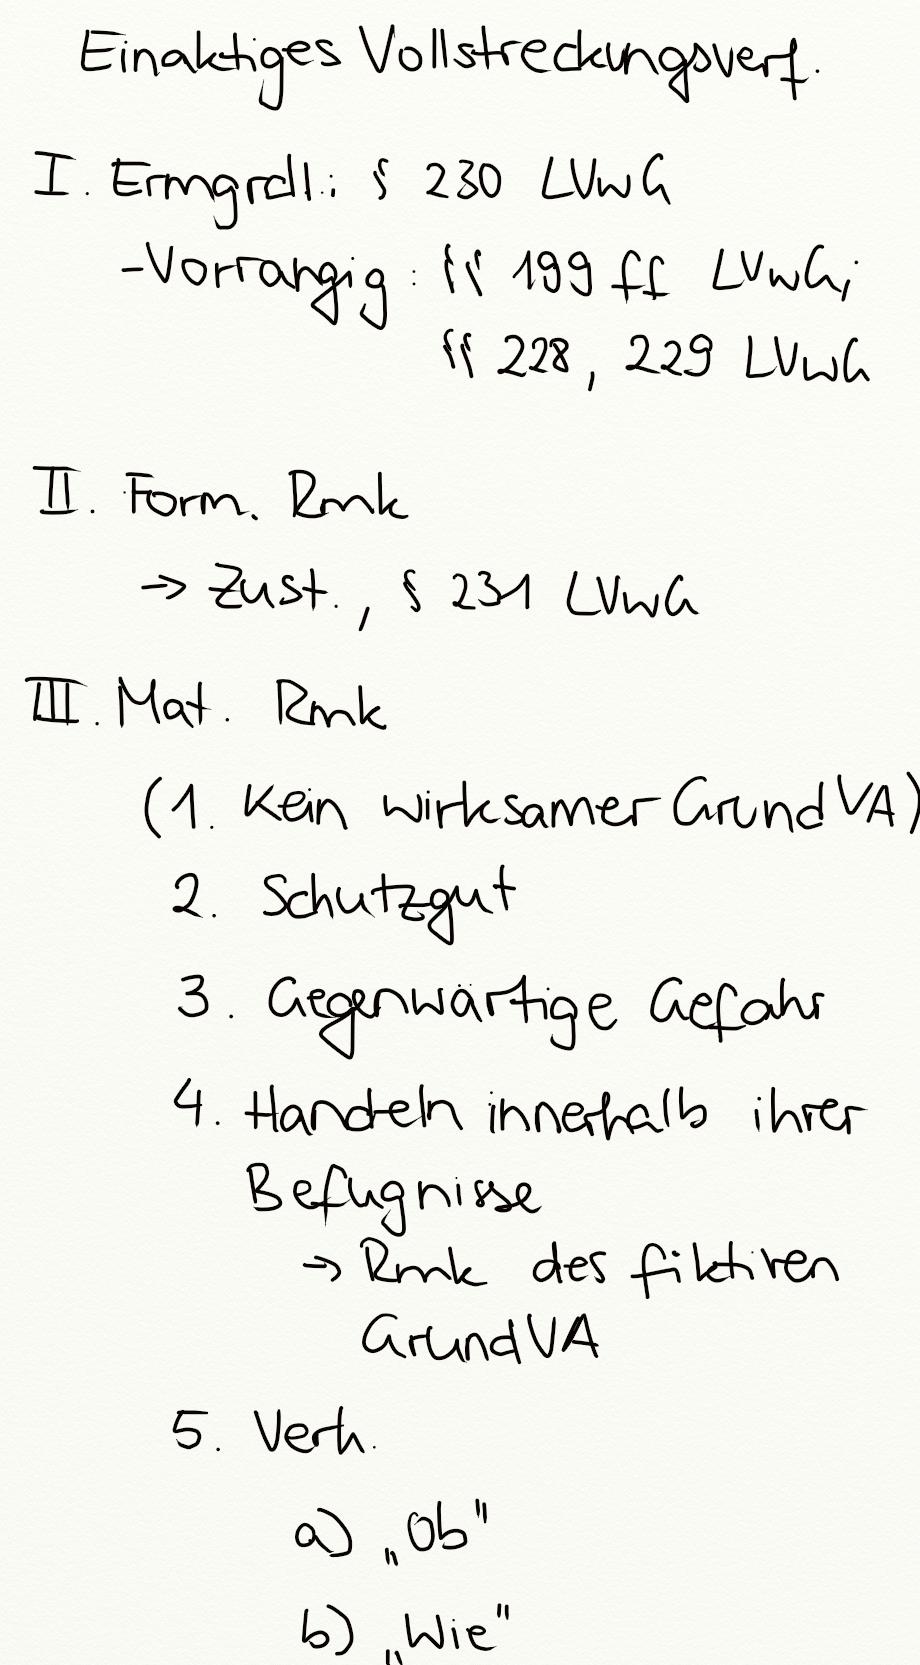 Einaktiges Vollstreckungsverf.
I. Ermgrdl.: § 230 LVwG
- Vorrangig: §§ 199 ff LVwG;
§§ 228, 229 LVwG
II. Form. Rmk
→ Zust., § 231 LVwG
III. Mat. Rmk
(1. Kein wirksamer GrundVA)
2. Schutzgut
3. Gegenwärtige Gefahr
4. Handeln innerhalb ihrer
Befugnisse
→ Rmk des fiktiven
GrundVA
5. Verh.
a) „Ob"
b) „Wie"